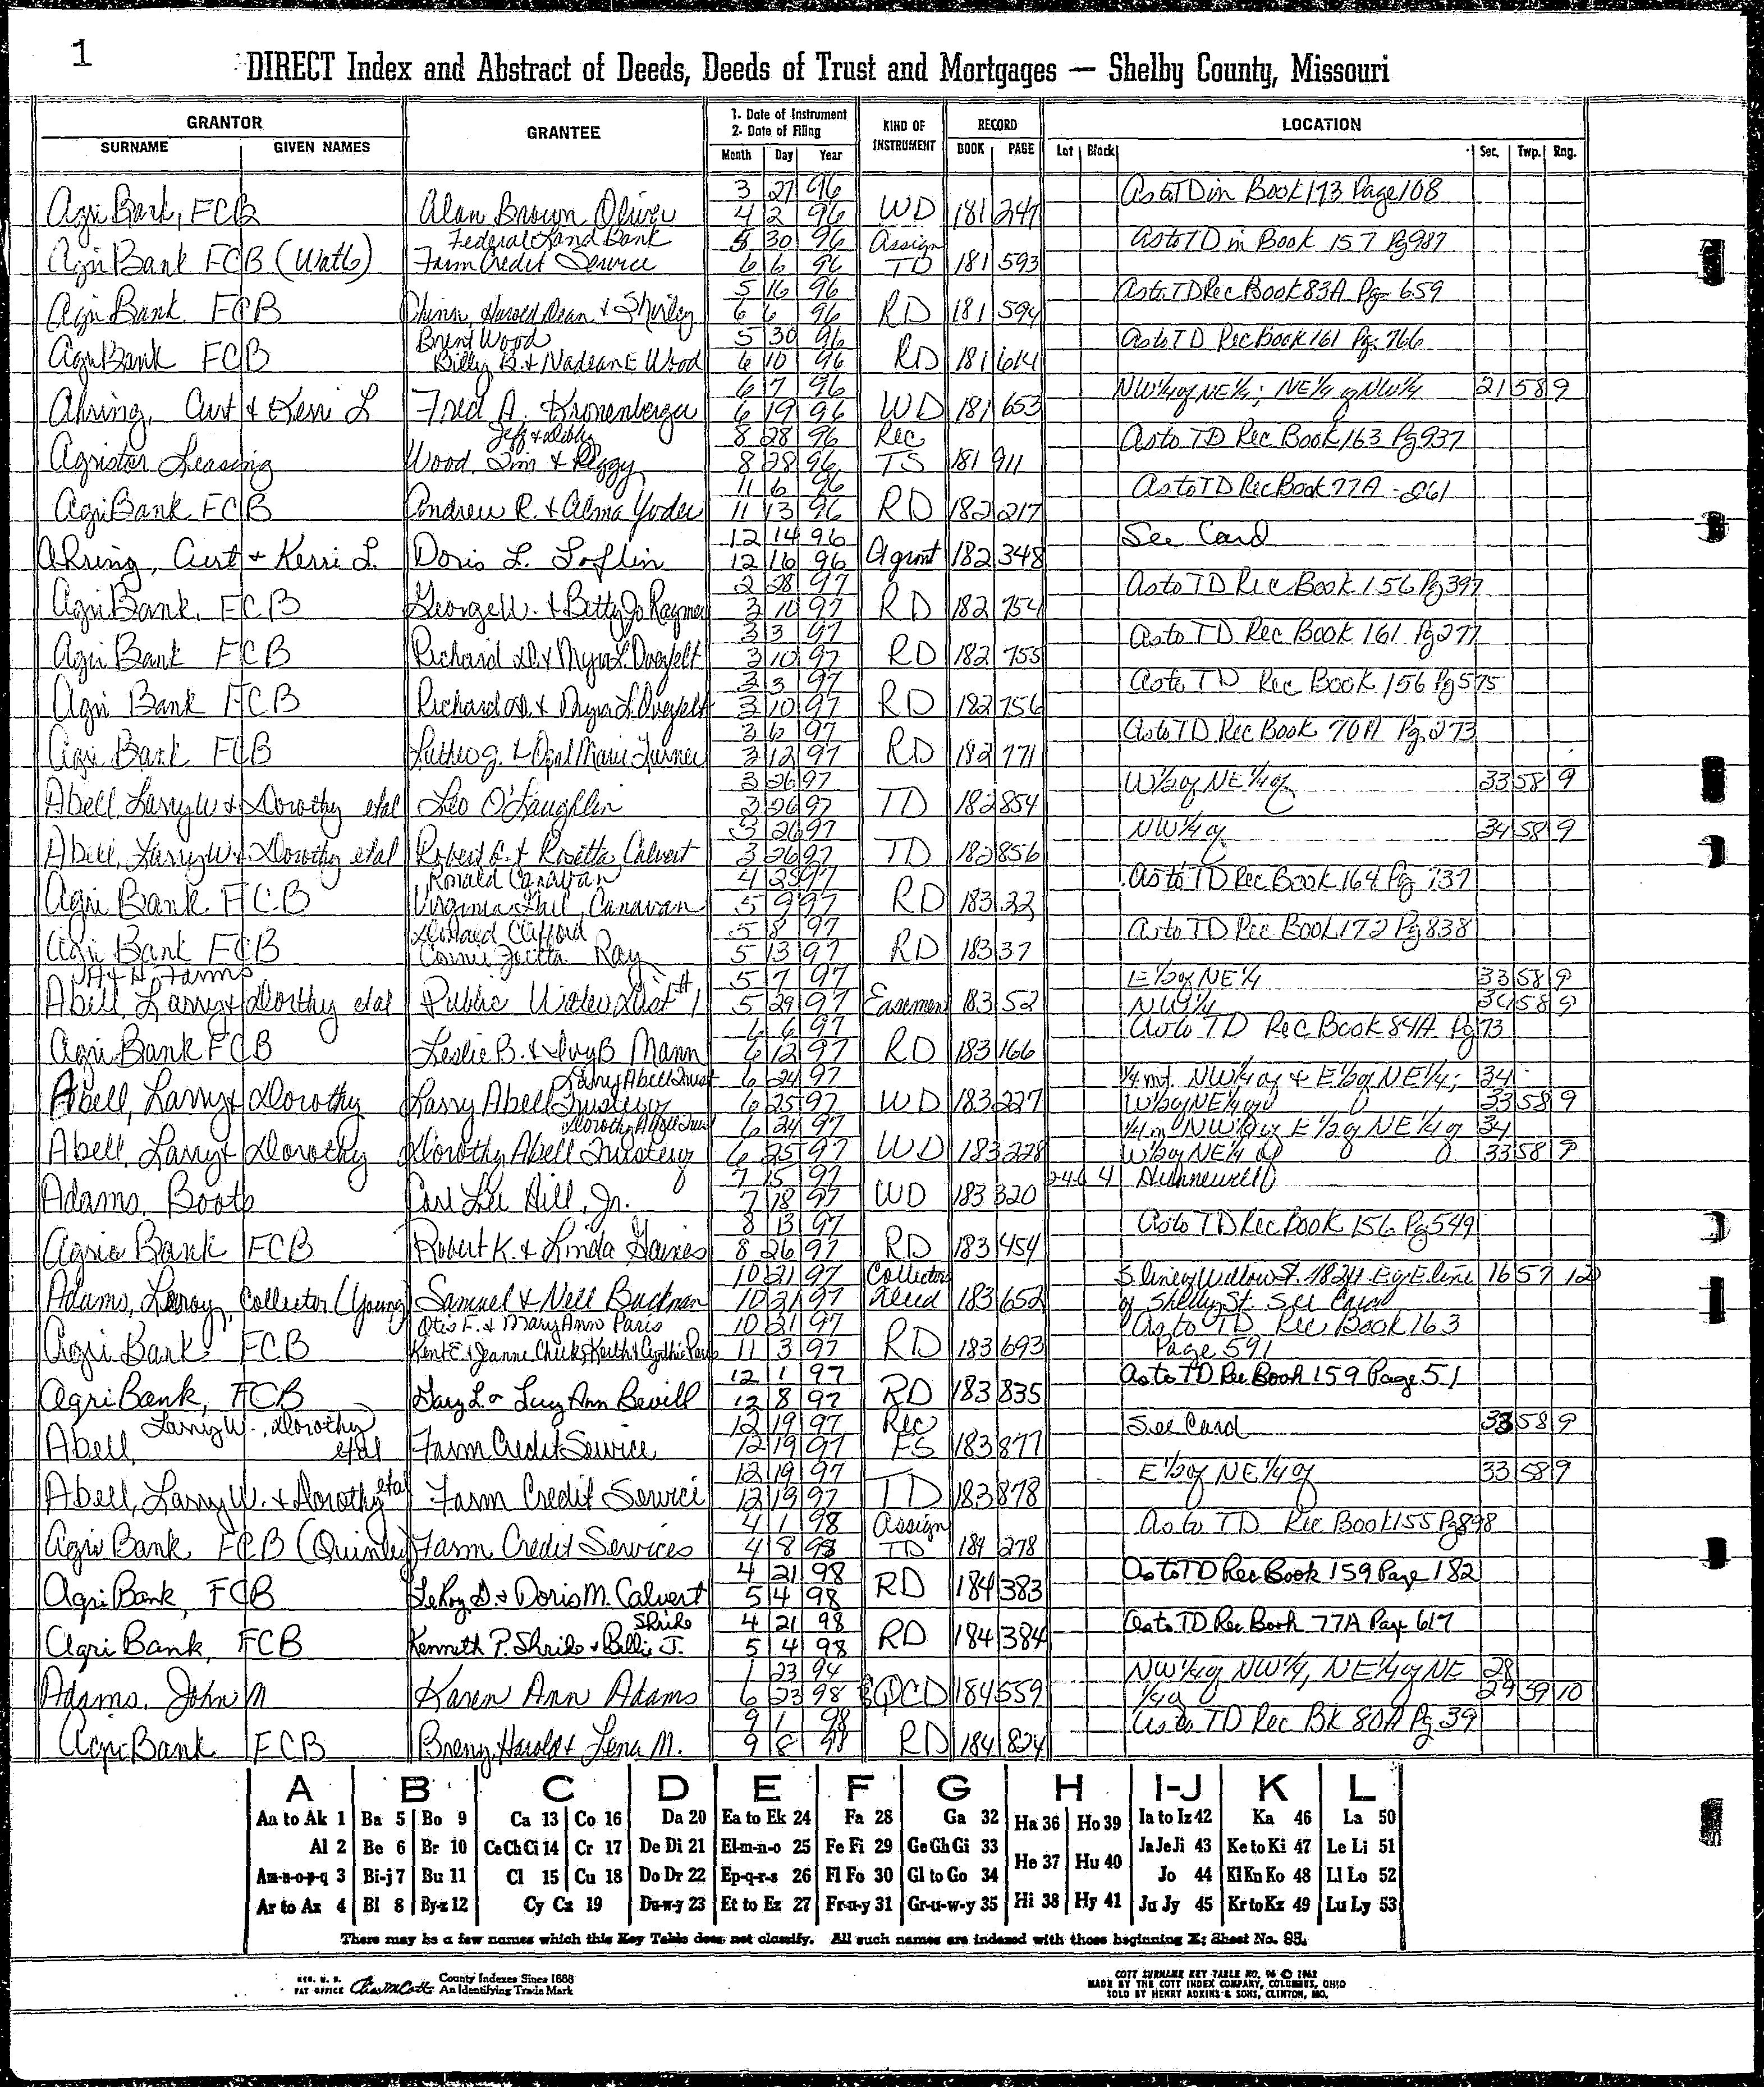 1
DIRECT Index and Abstract of Deeds, Deeds of Trust and Mortgages — Shelby County, Missouri
GRANTOR GRANTEE 1. Date of Instrument 2. Date of Filing KIND OF INSTRUMENT RECORD LOCATION
SURNAME GIVEN NAMES Month Day Year BOOK PAGE Lot Block Sec. Twp. Rng.
3 27 96 As to TD in Book 173 Page 108
Agri Bank, FCB Alan Brown Oliver 4 2 96 WD 181 247
Federal Land Bank 5 30 96 Assign As to TD in Book 157 Pg 987
Agri Bank FCB (Watts) Farm Credit Service 6 6 96 TD 181 593
5 16 96 As to TD Rec Book 83A Pg 659
Agri Bank FCB Chinn, Harold Dean & Shirley 6 6 96 RD 181 594
Brent Wood 5 30 96 As to TD Rec Book 161 Pg. 766
AgriBank FCB Billy B. & Nadean E Wood 6 10 96 RD 181 614
6 7 96 NW¼ of NE¼; NE¼ of NW¼ 21 58 9
Ahring, Curt & Kerri L Fred A. Kronenberger 6 19 96 WD 181 653
Jeff & Debby 8 28 96 Rec As to TD Rec Book 163 Pg 937
Agristor Leasing Wood, Jim & Peggy 8 28 96 TS 181 911
11 6 96 As to TD Rec Book 77A - 261
AgriBank FCB Andrew R. & Alma Yoder 11 13 96 RD 182 217
12 14 96 See Card
Ahring, Curt & Kerri L. Doris L. Loflin 12 16 96 Agrmt 182 348
2 28 97 As to TD Rec Book 156 Pg 397
AgriBank, FCB George W. & Betty Jo Raymer 3 10 97 RD 182 754
3 3 97 As to TD Rec Book 161 Pg 277
Agri Bank FCB Richard D. & Myra L. 3 10 97 RD 182 755
3 3 97 As to TD Rec Book 156 Pg 575
Agri Bank FCB Richard D. & Myra L. 3 10 97 RD 182 756
3 6 97 As to TD Rec Book 70A Pg. 273
Agri Bank FCB Luther G. & Opal Marie Turner 3 12 97 RD 182 771
3 26 97 W½ of NE¼ of 33 58 9
Abell, Larry W & Dorothy etal Leo O'Laughlin 3 26 97 TD 182 854
3 26 97 NW¼ of 34 58 9
Abell, Larry W & Dorothy etal Robert E. & Rosetta Calvert 3 26 97 TD 182 856
Ronald Canavan 4 25 97 As to TD Rec Book 164 Pg 737
Agri Bank FCB Virginia Gail Canavan 5 9 97 RD 183 22
Donald Clifford 5 8 97 As to TD Rec Book 172 Pg 838
Agri Bank FCB Connie Ray 5 13 97 RD 183 37
A & D Farms 5 7 97 E½ of NE¼ 33 58 9
Abell, Larry & Dorthy etal Public Water Dist #1 5 29 97 Easement 183 52 NW¼ 34 58 9
6 6 97 As to TD Rec Book 84A Pg 73
Agri Bank FCB Leslie B. & Ivy B Mann 6 12 97 RD 183 166
Larry Abell Trust 6 24 97 ¼ int. NW¼ of & E½ of NE¼; 34
Abell, Larry & Dorothy Larry Abell Trustee of 6 25 97 WD 183 227 W½ of NE¼ of 33 58 9
Dorothy Abell Trust 6 24 97 ¼ in NW¼ of E½ of NE¼ of 34
Abell, Larry & Dorothy Dorothy Abell Trustee of 6 25 97 WD 183 228 W½ of NE¼ of 33 58 9
7 15 97 246 4 Hunnewell
Adams, Boots Carl Lee Hill, Jr. 7 18 97 WD 183 320
8 13 97 As to TD Rec Book 156 Pg 549
Agria Bank FCB Robert K. & Linda Gaines 8 26 97 RD 183 454
10 21 97 Collectors S line of Willow St. 182ft E of E line 16 57 12
Adams, Leroy, Collector (Young) Samuel & Nell Buckman 10 21 97 Deed 183 652 of Shelby St. See Card
Otis F. & Mary Ann Paris 10 21 97 As to TD Rec Book 163
Agri Bank FCB Kent E & Jeanne Chick, Keith & Cynthia Paris 11 3 97 RD 183 693 Page 591
12 1 97 As to TD Rec Book 159 Page 51
AgriBank, FCB Gary L & Lucy Ann Bevill 12 8 97 RD 183 835
Larry W., Dorothy 12 19 97 Rec See Card 33 58 9
Abell, etal Farm Credit Service 12 19 97 FS 183 877
12 19 97 E½ of NE¼ of 33 58 9
Abell, Larry W. & Dorothy etal Farm Credit Service 12 19 97 TD 183 878
4 1 98 Assign As to TD Rec Book 155 Pg 898
Agri Bank, FCB (Quinley) Farm Credit Services 4 8 98 TD 184 278
4 21 98 As to TD Rec Book 159 Page 182
AgriBank, FCB LeRoy D. & Doris M. Calvert 5 4 98 RD 184 383
Shride 4 21 98 As to TD Rec Book 77A Page 617
Agri Bank, FCB Kenneth P. Shride & Billie J. 5 4 98 RD 184 384
1 23 94 NW¼ of NW¼, NE¼ of NE 28
Adams, John M Karen Ann Adams 6 23 98 QCD 184 559 ¼ of 29 59 10
9 1 98 As to TD Rec Bk 80A Pg 39
Agri Bank FCB Harold & Lena M. 9 8 98 RD 184 824
A B C D E F G H I-J K L
Aa to Ak 1 Ba 5 Bo 9 Ca 13 Co 16 Da 20 Ea to Ek 24 Fa 28 Ga 32 Ha 36 Ho 39 Ia to Iz 42 Ka 46 La 50
Al 2 Be 6 Br 10 Ce Ch Ci 14 Cr 17 De Di 21 El-m-n-o 25 Fe Fi 29 Ge Gh Gi 33 He 37 Hu 40 Ja Je Ji 43 Ke to Ki 47 Le Li 51
Am-n-o-p-q 3 Bi-j 7 Bu 11 Cl 15 Cu 18 Do Dr 22 Ep-q-r-s 26 Fl Fo 30 Gl to Go 34 Jo 44 Kl Kn Ko 48 Ll Lo 52
Ar to Az 4 Bl 8 By-z 12 Cy Cz 19 Du-w-y 23 Et to Ez 27 Fr-u-y 31 Gr-u-w-y 35 Hi 38 Hy 41 Ju Jy 45 Kr to Kz 49 Lu Ly 53
There may be a few names which this Key Table does not classify. All such names are indexed with those beginning X; Sheet No. 95.
REG. U. S. PAT OFFICE County Indexes Since 1888 An Identifying Trade Mark
COTT SURNAME KEY TABLE NO. 96 © 1962
MADE BY THE COTT INDEX COMPANY, COLUMBUS, OHIO
SOLD BY HENRY ADKINS & SONS, CLINTON, MO.